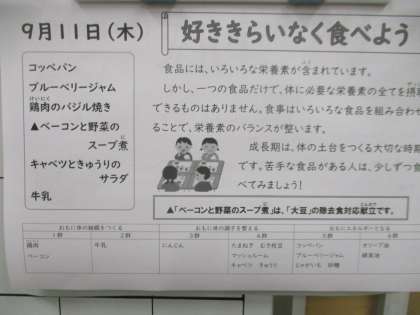 9月11日(木)
好ききらいなく食べよう
コッペパン
ブルーベリージャム
けいにく
鶏肉のバジル焼き
▲ベーコンと野菜の
に
スープ煮
キャベツときゅうりの
サラダ
牛乳
食品には、いろいろな栄養素が含まれています。
しかし、一つの食品だけで、体に必要な栄養素の全てを摂
できるものはありません。食事はいろいろな食品を組み合わ
ることで、栄養素のバランスが整います。
成長期は、体の土台をつくる大切な時期
です。苦手な食品がある人は、少しずつ食
べてみましょう!
▲「ベーコンと野菜のスープ煮」は、「大豆」の除去食対応献立です。
おもに体の組織をつくる
おもに体の調子を整える
おもにエネルギーとなる
1群 2群 3群 4群 5群 6群
鶏肉 牛乳 にんじん たまねぎ むき枝豆 コッペパン オリーブ油
ベーコン マッシュルーム ブルーベリージャム
キャベツ きゅうり じゃがいも 砂糖